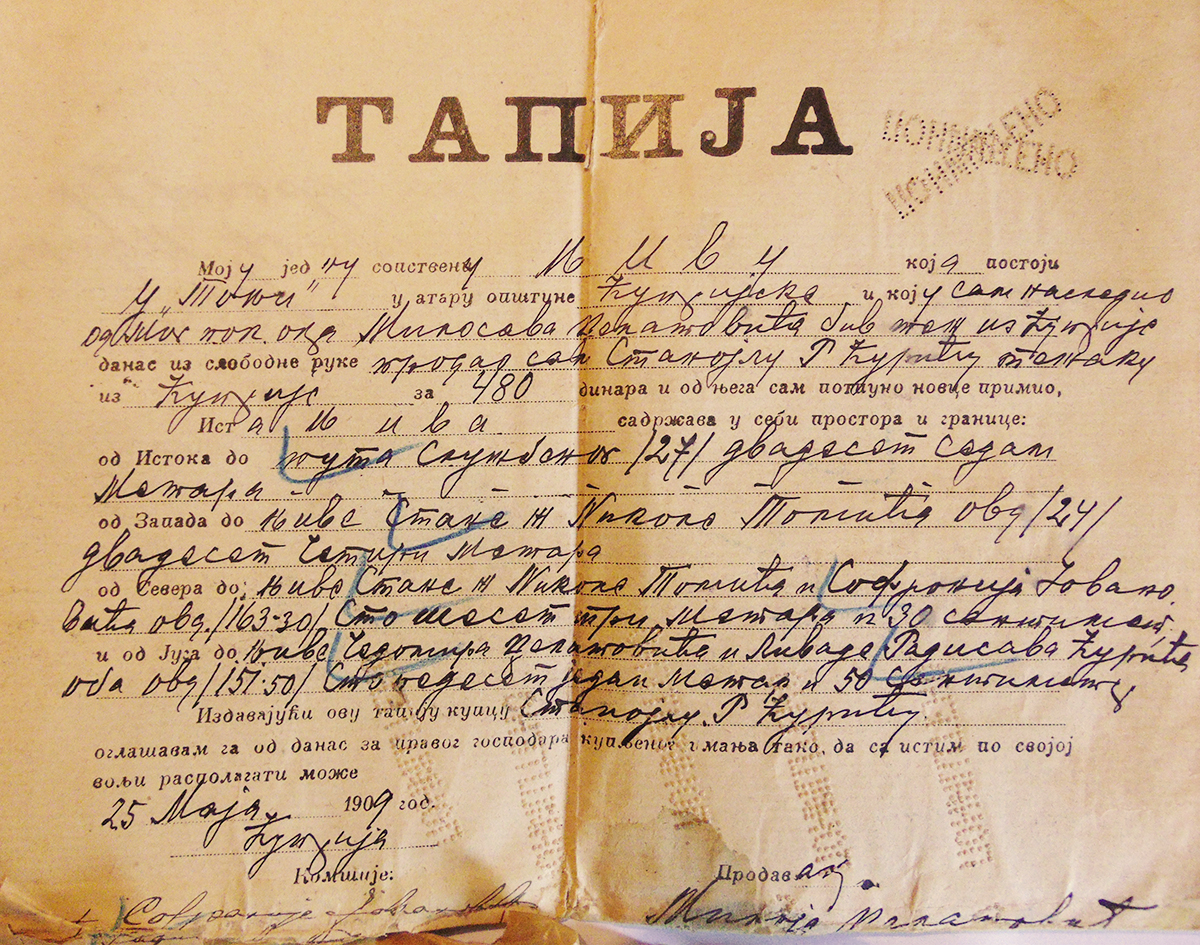 ТАПИЈА
ПОНИШТЕНО
ПОНИШТЕНО
Моју једну сопствену њ и в у која постоји
у у атару општине Ћупријске и коју сам наследио
од пок. оца Милосава бив. из Ћуприје
данас из слободне руке продао сам Станојлу Р Ћурићу тежаку
из Ћуприје за 480 динара и од њега сам потпуно новце примио,
Иста њ и в а садржава у себи простора и границе:
од Истока до пута /27/ двадесет седам
метара
од Запада до њиве Стане ж Николе Томића овд /24/
двадесет четири метара
од Севера до њиве Стане ж Николе Томића и Софронија Јовано
вића овд. /163-30/ Сто шесет три метара и 30 сантимет.
и од Југа до њиве Чедомира и ливаде Радисава Ћурића
оба овд /151-50/ Сто педесет један метар и 50 сантиметра
Издавајући ову тапију купцу Станојлу Р Ћурићу
оглашавам га од данас за правог господара купљеног имања тако, да са истим по својој
вољи располагати може
25 Маја 1909 год.
Ћуприја
Комшије: Продавац